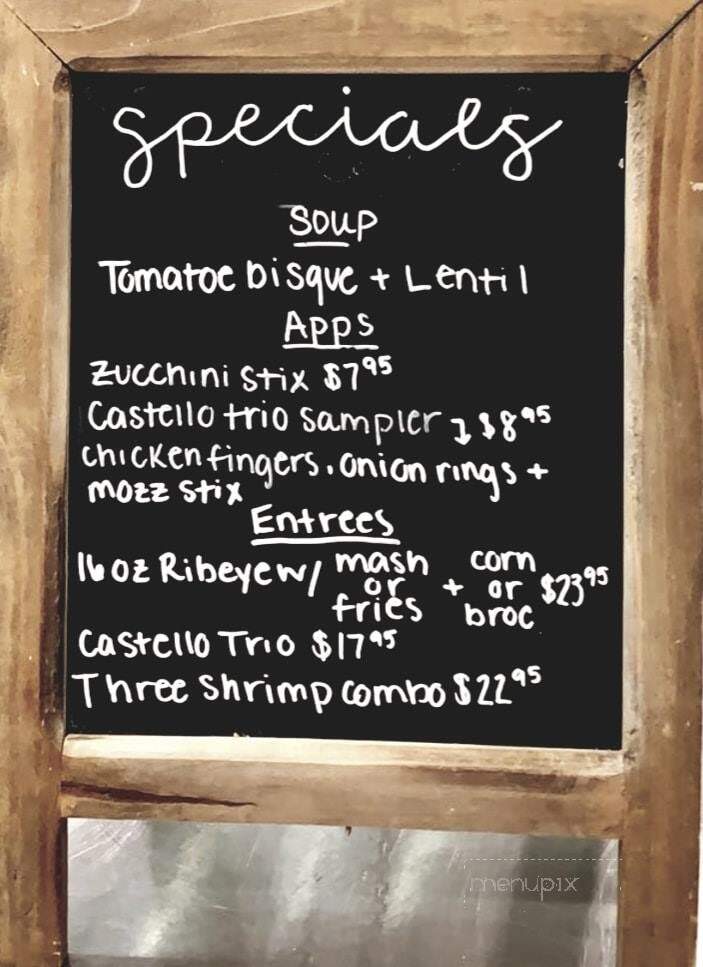 specials
Soup
Tomatoe bisque + Lentil
Apps
Zucchini Stix $7.95
Castello trio sampler ↴ $8.95
chicken fingers, onion rings +
mozz stix
Entrees
16 oz Ribeye w/ mash or fries + corn or broc $23.95
Castello Trio $17.95
Three Shrimp combo $22.95
menupix